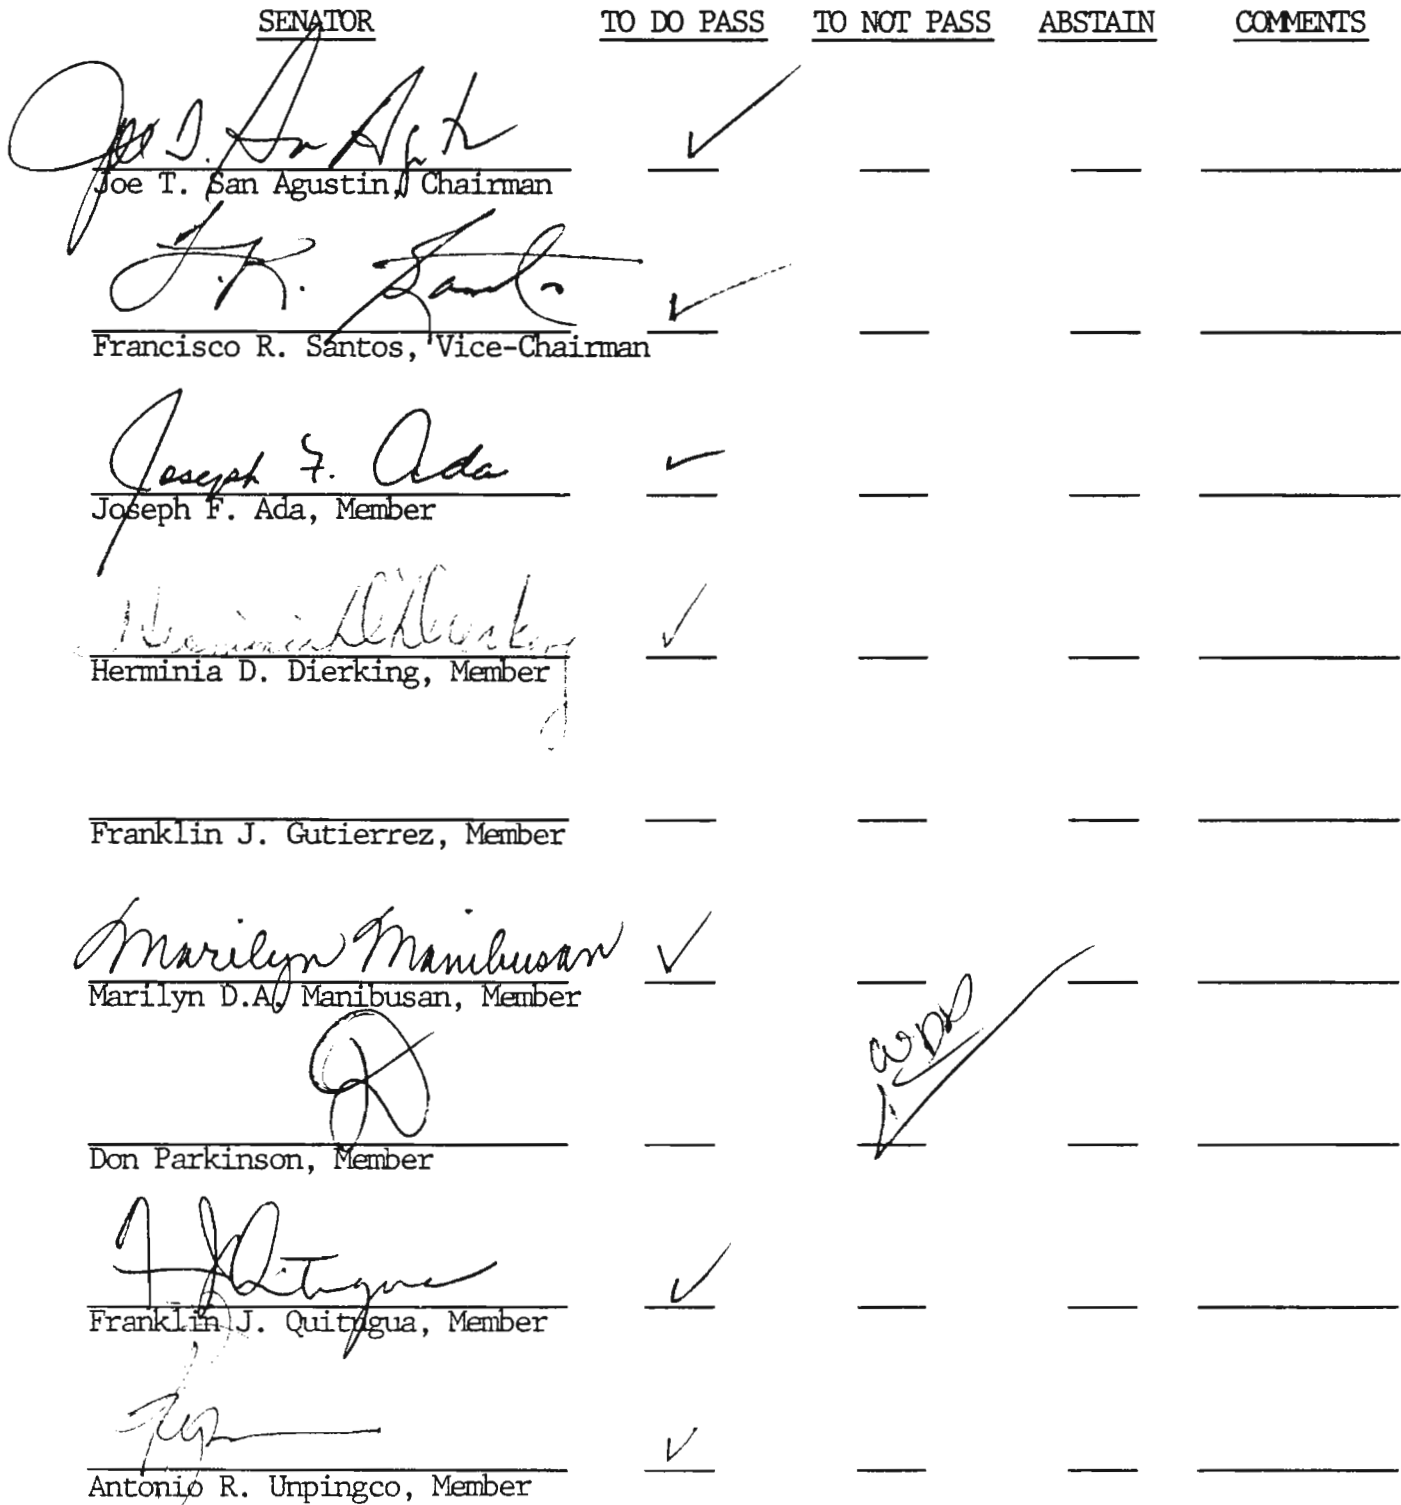 SENATOR TO DO PASS TO NOT PASS ABSTAIN COMMENTS
Joe T. San Agustin, Chairman
Francisco R. Santos, Vice-Chairman
Joseph F. Ada
Joseph F. Ada, Member
Herminia D. Dierking
Herminia D. Dierking, Member
Franklin J. Gutierrez, Member
Marilyn Manibusan
Marilyn D.A. Manibusan, Member
Don Parkinson, Member
Franklin J. Quitugua, Member
Antonio R. Unpingco, Member